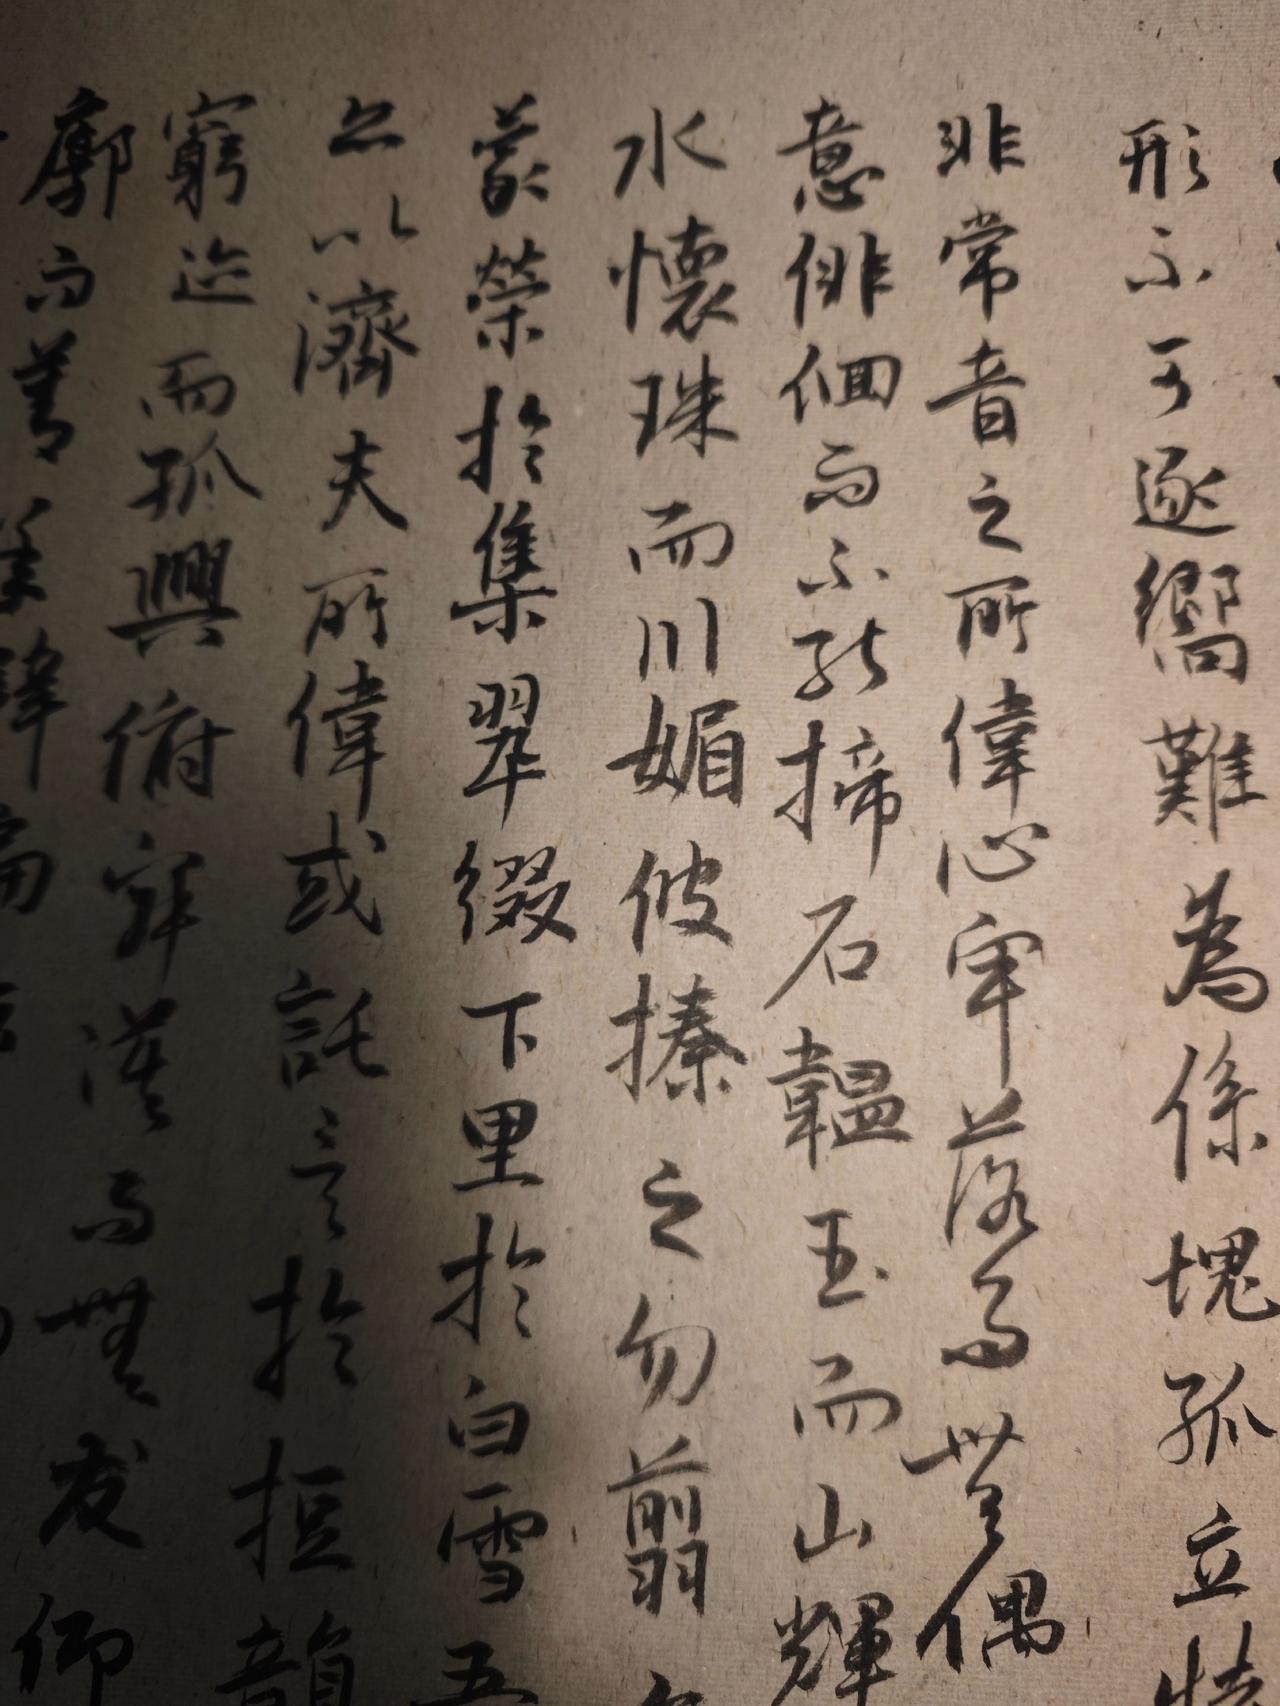 形不可逐嚮難為係塊孤立特
非常音之所偉心牢落而無偶
意徘徊而不能掃石韞玉而山輝
水懷珠而川媚彼榛之勿翦
蒙榮於集翠綴下里於白雪吾
亦以濟夫所偉或託言於短韻
窮迹而孤興俯寂漠而無友仰
廖而